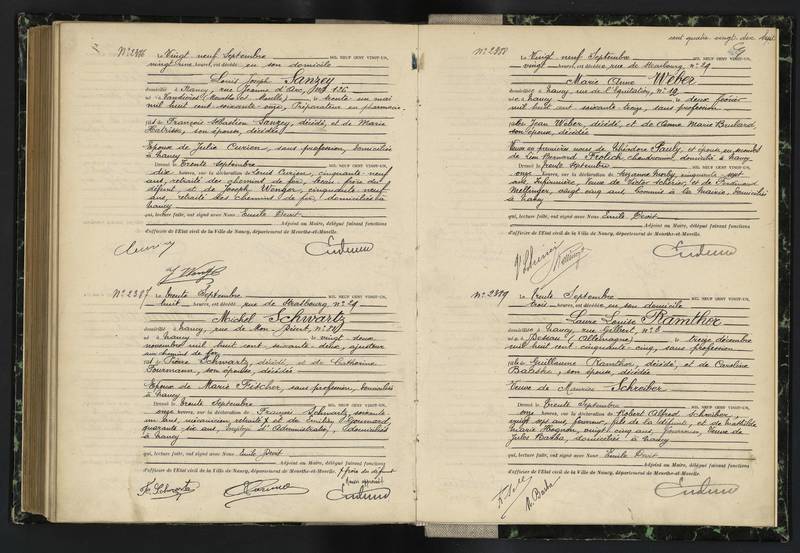 cent quatre vingt dix sept
Nº 2386
Vingt neuf Septembre MIL NEUF CENT VINGT-UN,
vingt une heures, est décédé en son domicile
Louis Joseph Sanzey
domicilié à Nancy, rue Jeanne d'Arc, Nº 126
né à Vandières (Meurthe et Moselle) le trente un mai
mil huit cent soixante onze, Préparateur en pharmacie
fils de François Sébastien Sanzey, décédé, et de Marie
son épouse, décédée
Epoux de Julie Curien, sans profession, domiciliée
à Nancy
Dressé le Trente septembre MIL NEUF CENT VINGT-UN,
dix heures, sur la déclaration de Louis Curien, cinquante neuf
ans, retraité des chemins de fer, beau frère du
défunt et de Joseph cinquante neuf
ans, retraité des chemins de fer, domiciliés à
Nancy
qui, lecture faite, ont signé avec Nous Emile
Adjoint au Maire, délégué faisant fonctions
d'officier de l'Etat civil de la Ville de Nancy, département de Meurthe-et-Moselle.
Nº 2387
Trente Septembre MIL NEUF CENT VINGT-UN,
huit heures, est décédé rue de Strasbourg Nº 29
Michel Schwartz
domicilié à Nancy, rue de Mon Désert, Nº
né à Nancy le vingt deux
novembre mil huit cent soixante deux, ajusteur
au chemin de fer
fils de Pierre Schwartz, décédé, et de Catherine
son épouse, décédée
Epoux de Marie Fischer, sans profession, domiciliée
à Nancy
Dressé le Trente septembre MIL NEUF CENT VINGT-UN,
onze heures, sur la déclaration de François Schwartz, soixante
un ans, mécanicien retraité et de Emilien
quarante six ans, employé d'Administration, domiciliés
à Nancy
qui, lecture faite, ont signé avec Nous Emile
Adjoint au Maire, délégué faisant fonctions
d'officier de l'Etat civil de la Ville de Nancy, département de Meurthe-et-Moselle.
frère du défunt
F. Schwartz
Nº 2388
Vingt neuf Septembre MIL NEUF CENT VINGT-UN,
vingt heures, est décédée rue de Strasbourg Nº 29
Marie Anne Weber
domiciliée à Nancy rue de l'Equitation, Nº 19
née à Nancy le deux février
mil huit cent soixante treize, sans profession
fille de Jean Weber, décédé, et de Anne Marie
son épouse, décédée
Veuve en premières noces de Théodore Pauly et épouse en secondes
de Léon Bernard Frolich domicilié à Nancy
Dressé le trente Septembre MIL NEUF CENT VINGT-UN,
onze heures, sur la déclaration de Suzanne
ans Infirmière, Veuve de Victor Schérier, et de Ferdinand
Mellinger, vingt cinq ans Commis à la Mairie, domiciliés
à Nancy
qui, lecture faite, ont signé avec Nous Emile
Adjoint au Maire, délégué faisant fonctions
d'officier de l'Etat civil de la Ville de Nancy, département de Meurthe-et-Moselle.
Nº 2389
Trente Septembre MIL NEUF CENT VINGT-UN,
trois heures, est décédée en son domicile
Laure Louise Ramther
domiciliée à Nancy, rue Gilbert, Nº 8
née à (Allemagne) le treize décembre
mil huit cent cinquante cinq, sans profession
fille de Guillaume Ramther, décédé, et de Caroline
son épouse, décédée
Veuve de Maurice Schreiber
Dressé le Trente Septembre MIL NEUF CENT VINGT-UN,
onze heures, sur la déclaration de Robert Alfred Schreiber,
vingt sept ans, fils de la défunte, et de Mathilde
Marie cinquante cinq ans, Veuve de
Jules Basha, domiciliés à Nancy
qui, lecture faite, ont signé avec Nous Emile
Adjoint au Maire, délégué faisant fonctions
d'officier de l'Etat civil de la Ville de Nancy, département de Meurthe-et-Moselle.